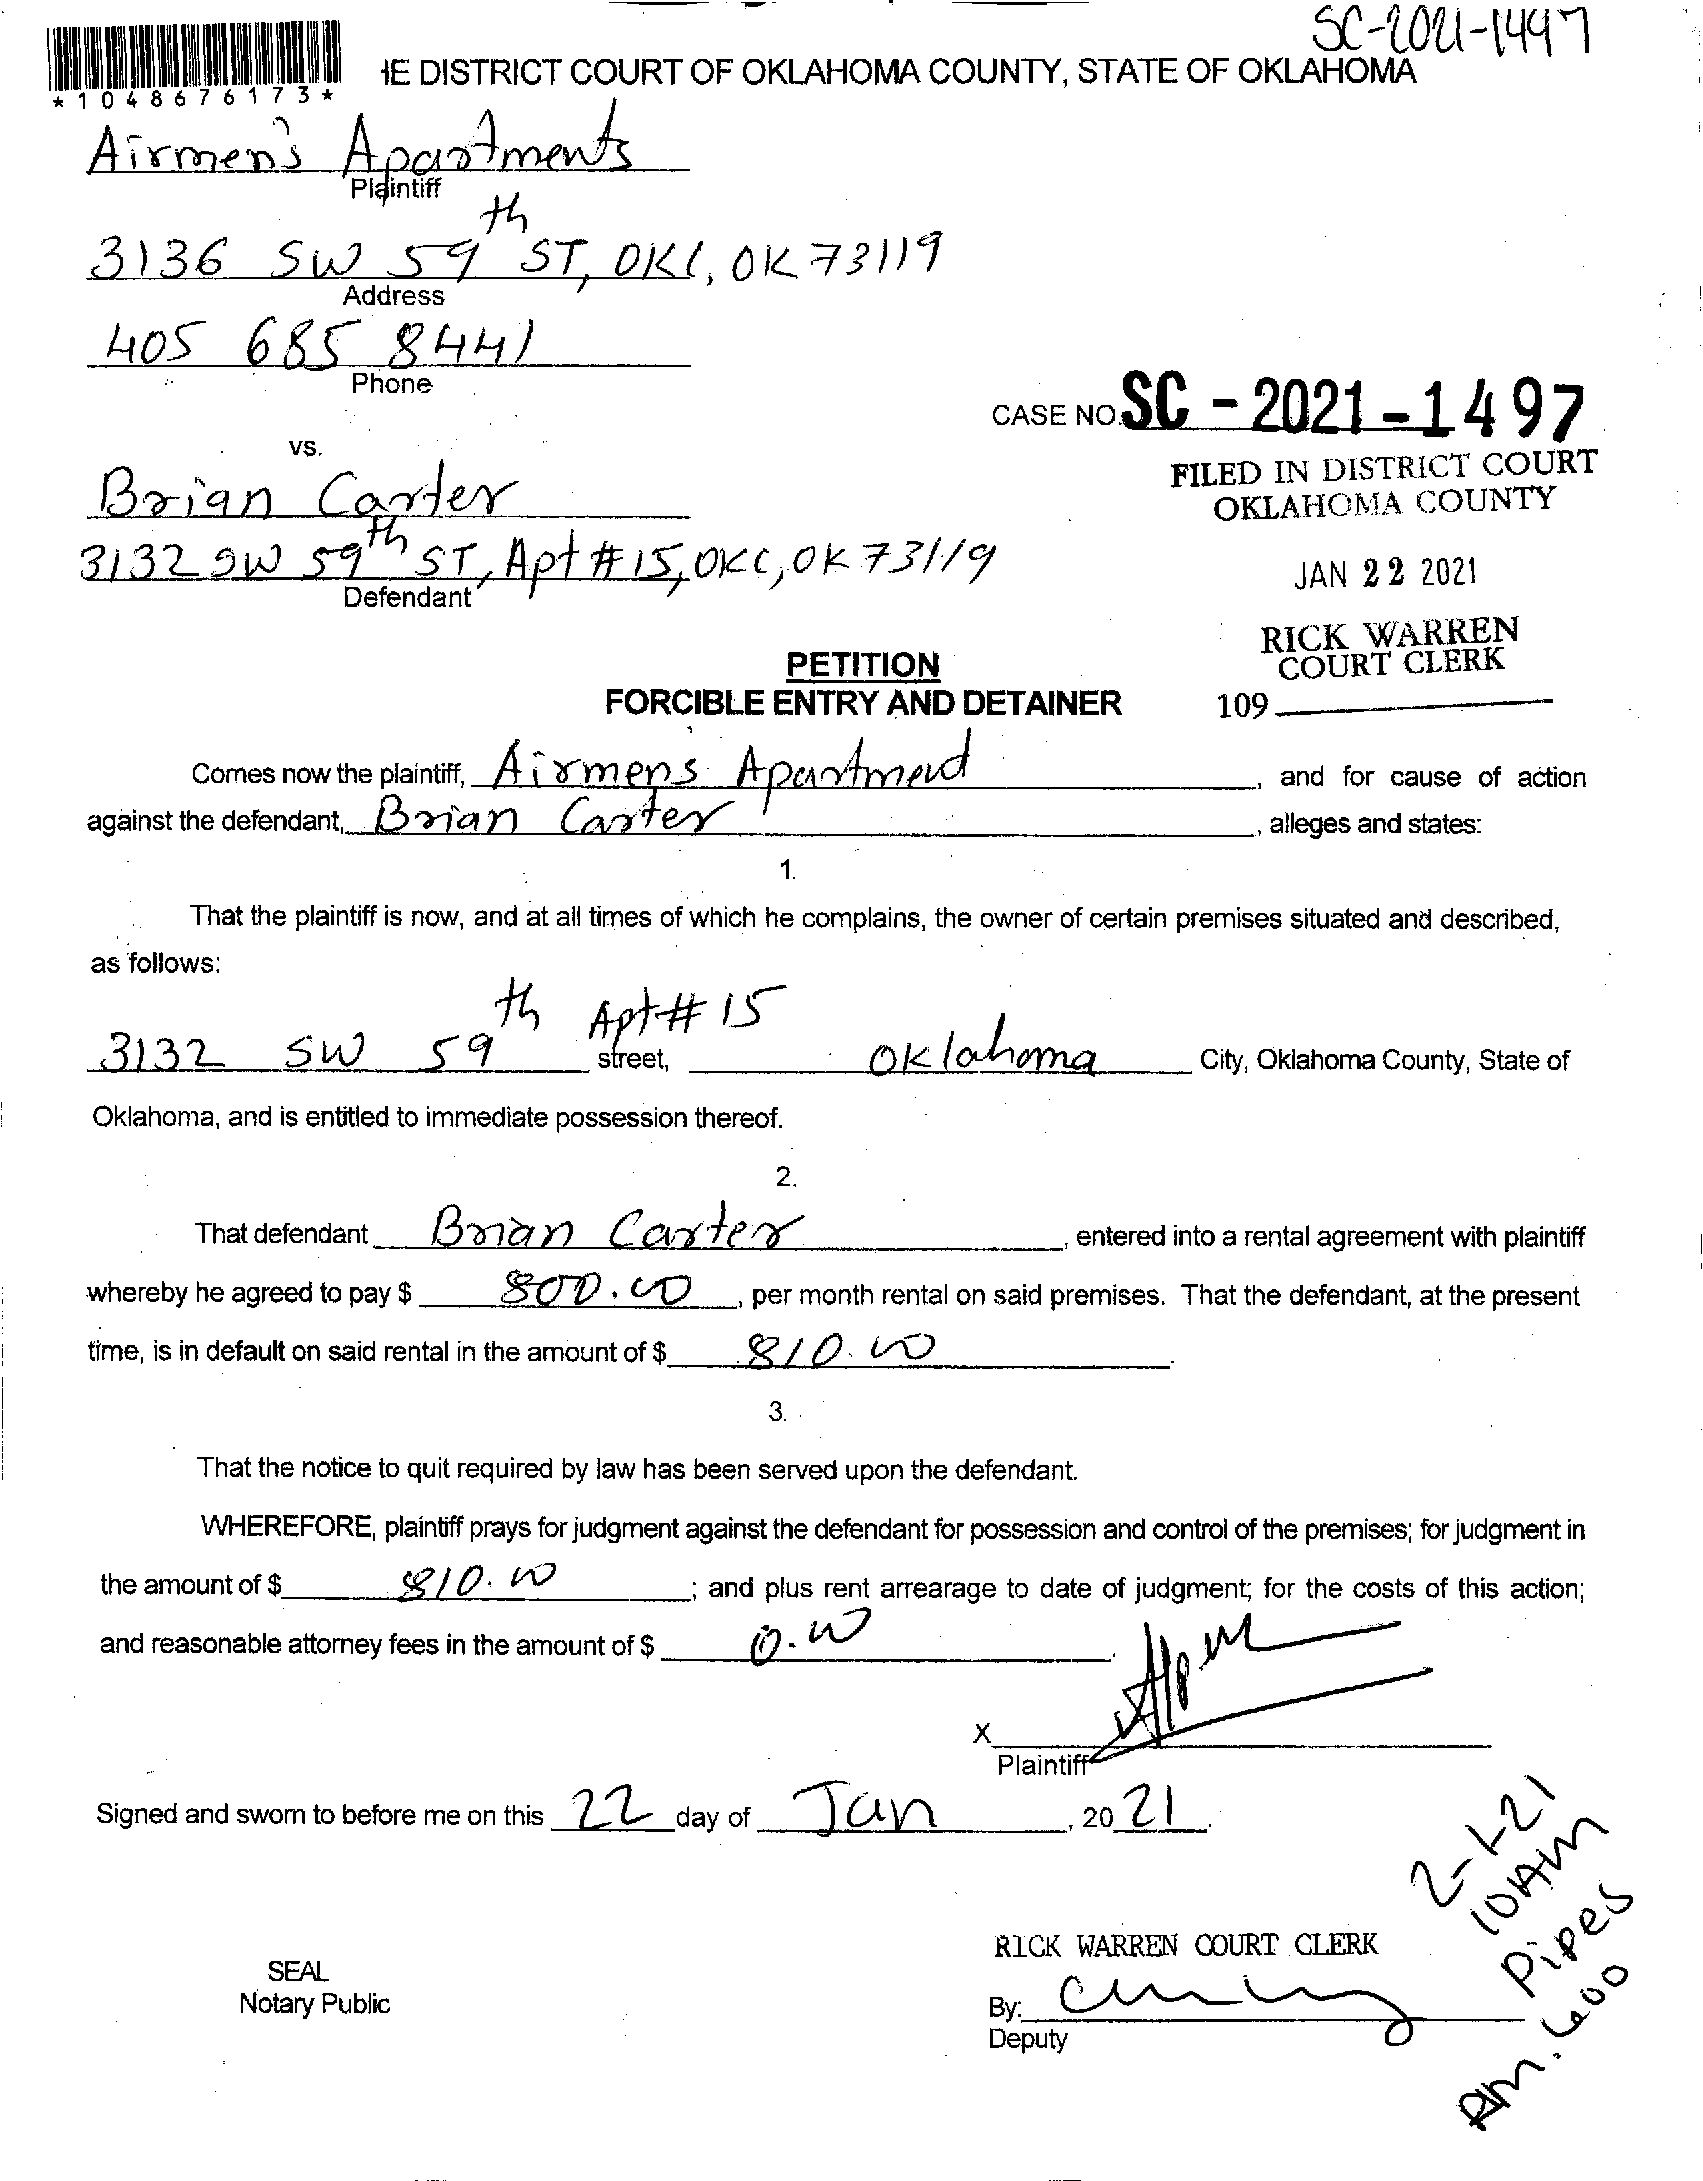 SC-2021-1497
*1048676173*
HE DISTRICT COURT OF OKLAHOMA COUNTY, STATE OF OKLAHOMA
Airmen's Apartments
Plaintiff
3136 SW 59th ST, OKC, OK 73119
Address
405 685 8441
Phone
CASE NO. SC - 2021 - 1497
vs.
FILED IN DISTRICT COURT
OKLAHOMA COUNTY
Brian Carter
3132 SW 59th ST, Apt # 15, OKC, OK 73119
Defendant
JAN 22 2021
RICK WARREN
COURT CLERK
109
PETITION
FORCIBLE ENTRY AND DETAINER
Comes now the plaintiff, Airmens Apartment, and for cause of action
against the defendant, Brian Carter, alleges and states:
1.
That the plaintiff is now, and at all times of which he complains, the owner of certain premises situated and described,
as follows:
3132 SW 59th Apt # 15 street, Oklahoma City, Oklahoma County, State of
Oklahoma, and is entitled to immediate possession thereof.
2.
That defendant Brian Carter, entered into a rental agreement with plaintiff
whereby he agreed to pay $ 800.00, per month rental on said premises. That the defendant, at the present
time, is in default on said rental in the amount of $ 810.00.
3.
That the notice to quit required by law has been served upon the defendant.
WHEREFORE, plaintiff prays for judgment against the defendant for possession and control of the premises; for judgment in
the amount of $ 810.00; and plus rent arrearage to date of judgment; for the costs of this action;
and reasonable attorney fees in the amount of $ 0.00.
X
Plaintiff
Signed and sworn to before me on this 22 day of Jan, 20 21.
2-1-21
10AM
Pipes
Rm. 600
RICK WARREN COURT CLERK
SEAL
Notary Public
By:
Deputy